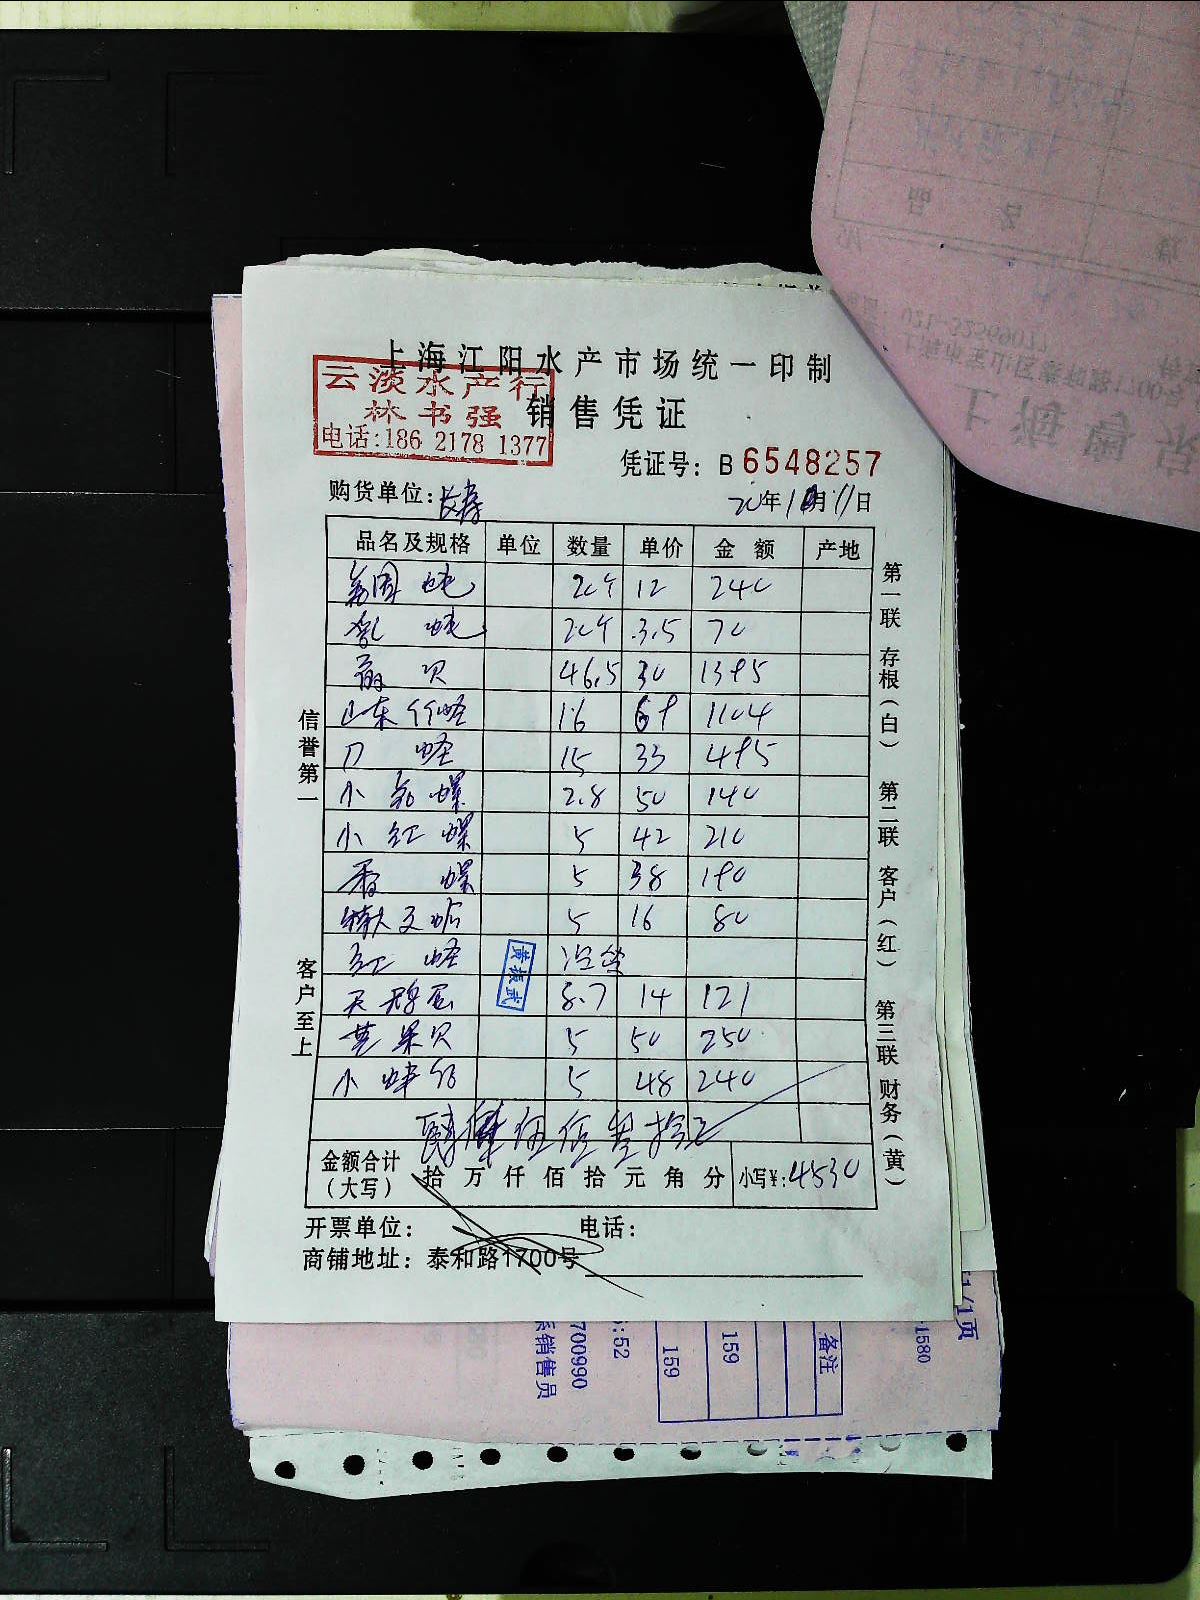 上海江阳水产市场统一印制
云淡水产行
林书强
电话:186 2178 1377
销售凭证
凭证号: B 6548257
购货单位:
20年10月11日
品名及规格 单位 数量 单价 金额 产地
20斤 12 240
20斤 3.5 70
贝 46.5 30 1395
山东竹蛏 16 69 1104
刀蛏 15 33 495
小花螺 2.8 50 140
小红螺 5 42 210
香螺 5 38 190
5 16 80
红蛏
天鹅蛋 8.7 14 121
芒果贝 5 50 250
小 5 48 240
黄振武
肆仟伍佰叁拾元
金额合计
(大写)
拾 万 仟 佰 拾 元 角 分 小写¥:4530
开票单位: 电话:
商铺地址: 泰和路1700号
信誉第一
客户至上
第一联 存根(白) 第二联 客户(红) 第三联 财务(黄)
1/1页
1580
备注
159
159
:52
700990
系销售员